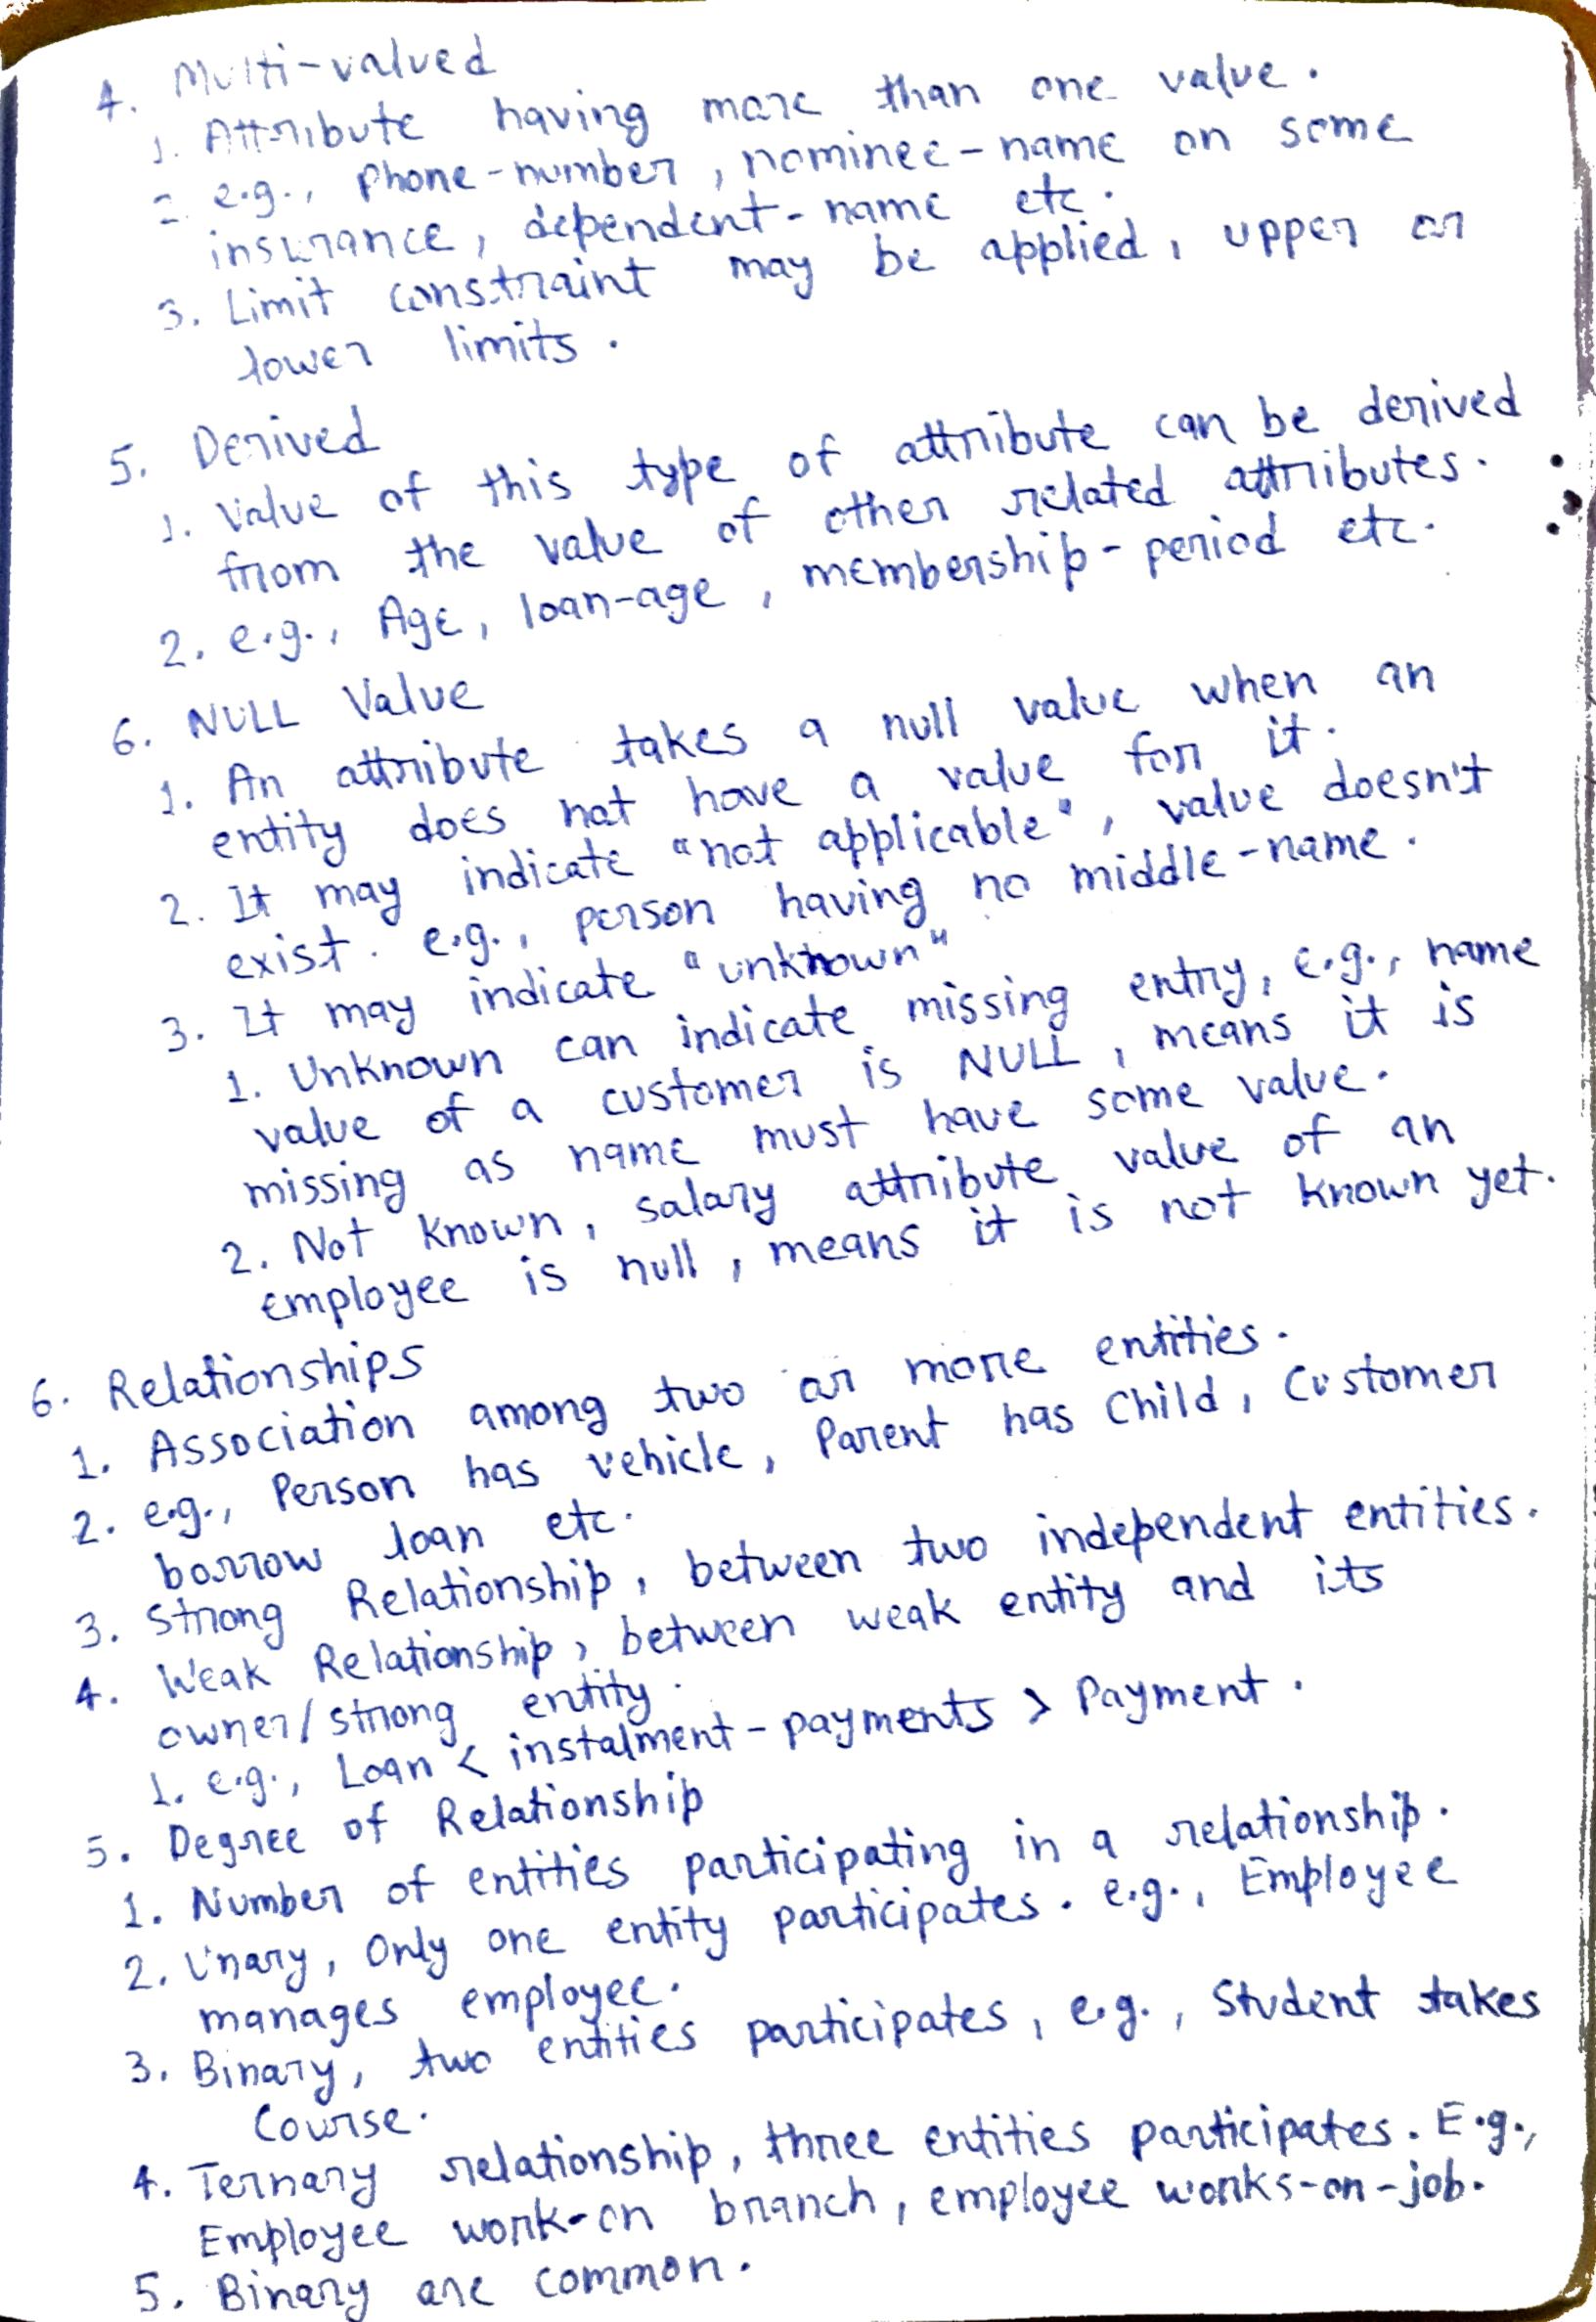 4. Multi-valued
1. Attribute having more than one value.
2. e.g., phone-number, nominee-name on some
insurance, dependent-name etc.
3. Limit constraint may be applied, upper or
lower limits.
5. Derived
1. Value of this type of attribute can be derived
from the value of other related attributes.
2. e.g., Age, loan-age, membership-period etc.
6. NULL Value
1. An attribute takes a null value when an
entity does not have a value for it.
2. It may indicate "not applicable", value doesn't
exist. e.g., person having no middle-name.
3. It may indicate "unknown"
1. Unknown can indicate missing entry, e.g., name
value of a customer is NULL, means it is
missing as name must have some value.
2. Not known, salary attribute value of an
employee is null, means it is not known yet.
6. Relationships
1. Association among two or more entities.
2. e.g., Person has vehicle, Parent has Child, Customer
borrow loan etc.
3. Strong Relationship, between two independent entities.
4. Weak Relationship, between weak entity and its
owner/strong entity.
1. e.g., Loan < instalment-payments > Payment.
5. Degree of Relationship
1. Number of entities participating in a relationship.
2. Unary, Only one entity participates. e.g., Employee
manages employee.
3. Binary, two entities participates, e.g., Student takes
Course.
4. Ternary relationship, three entities participates. E.g.,
Employee work-on branch, employee works-on-job.
5. Binary are common.